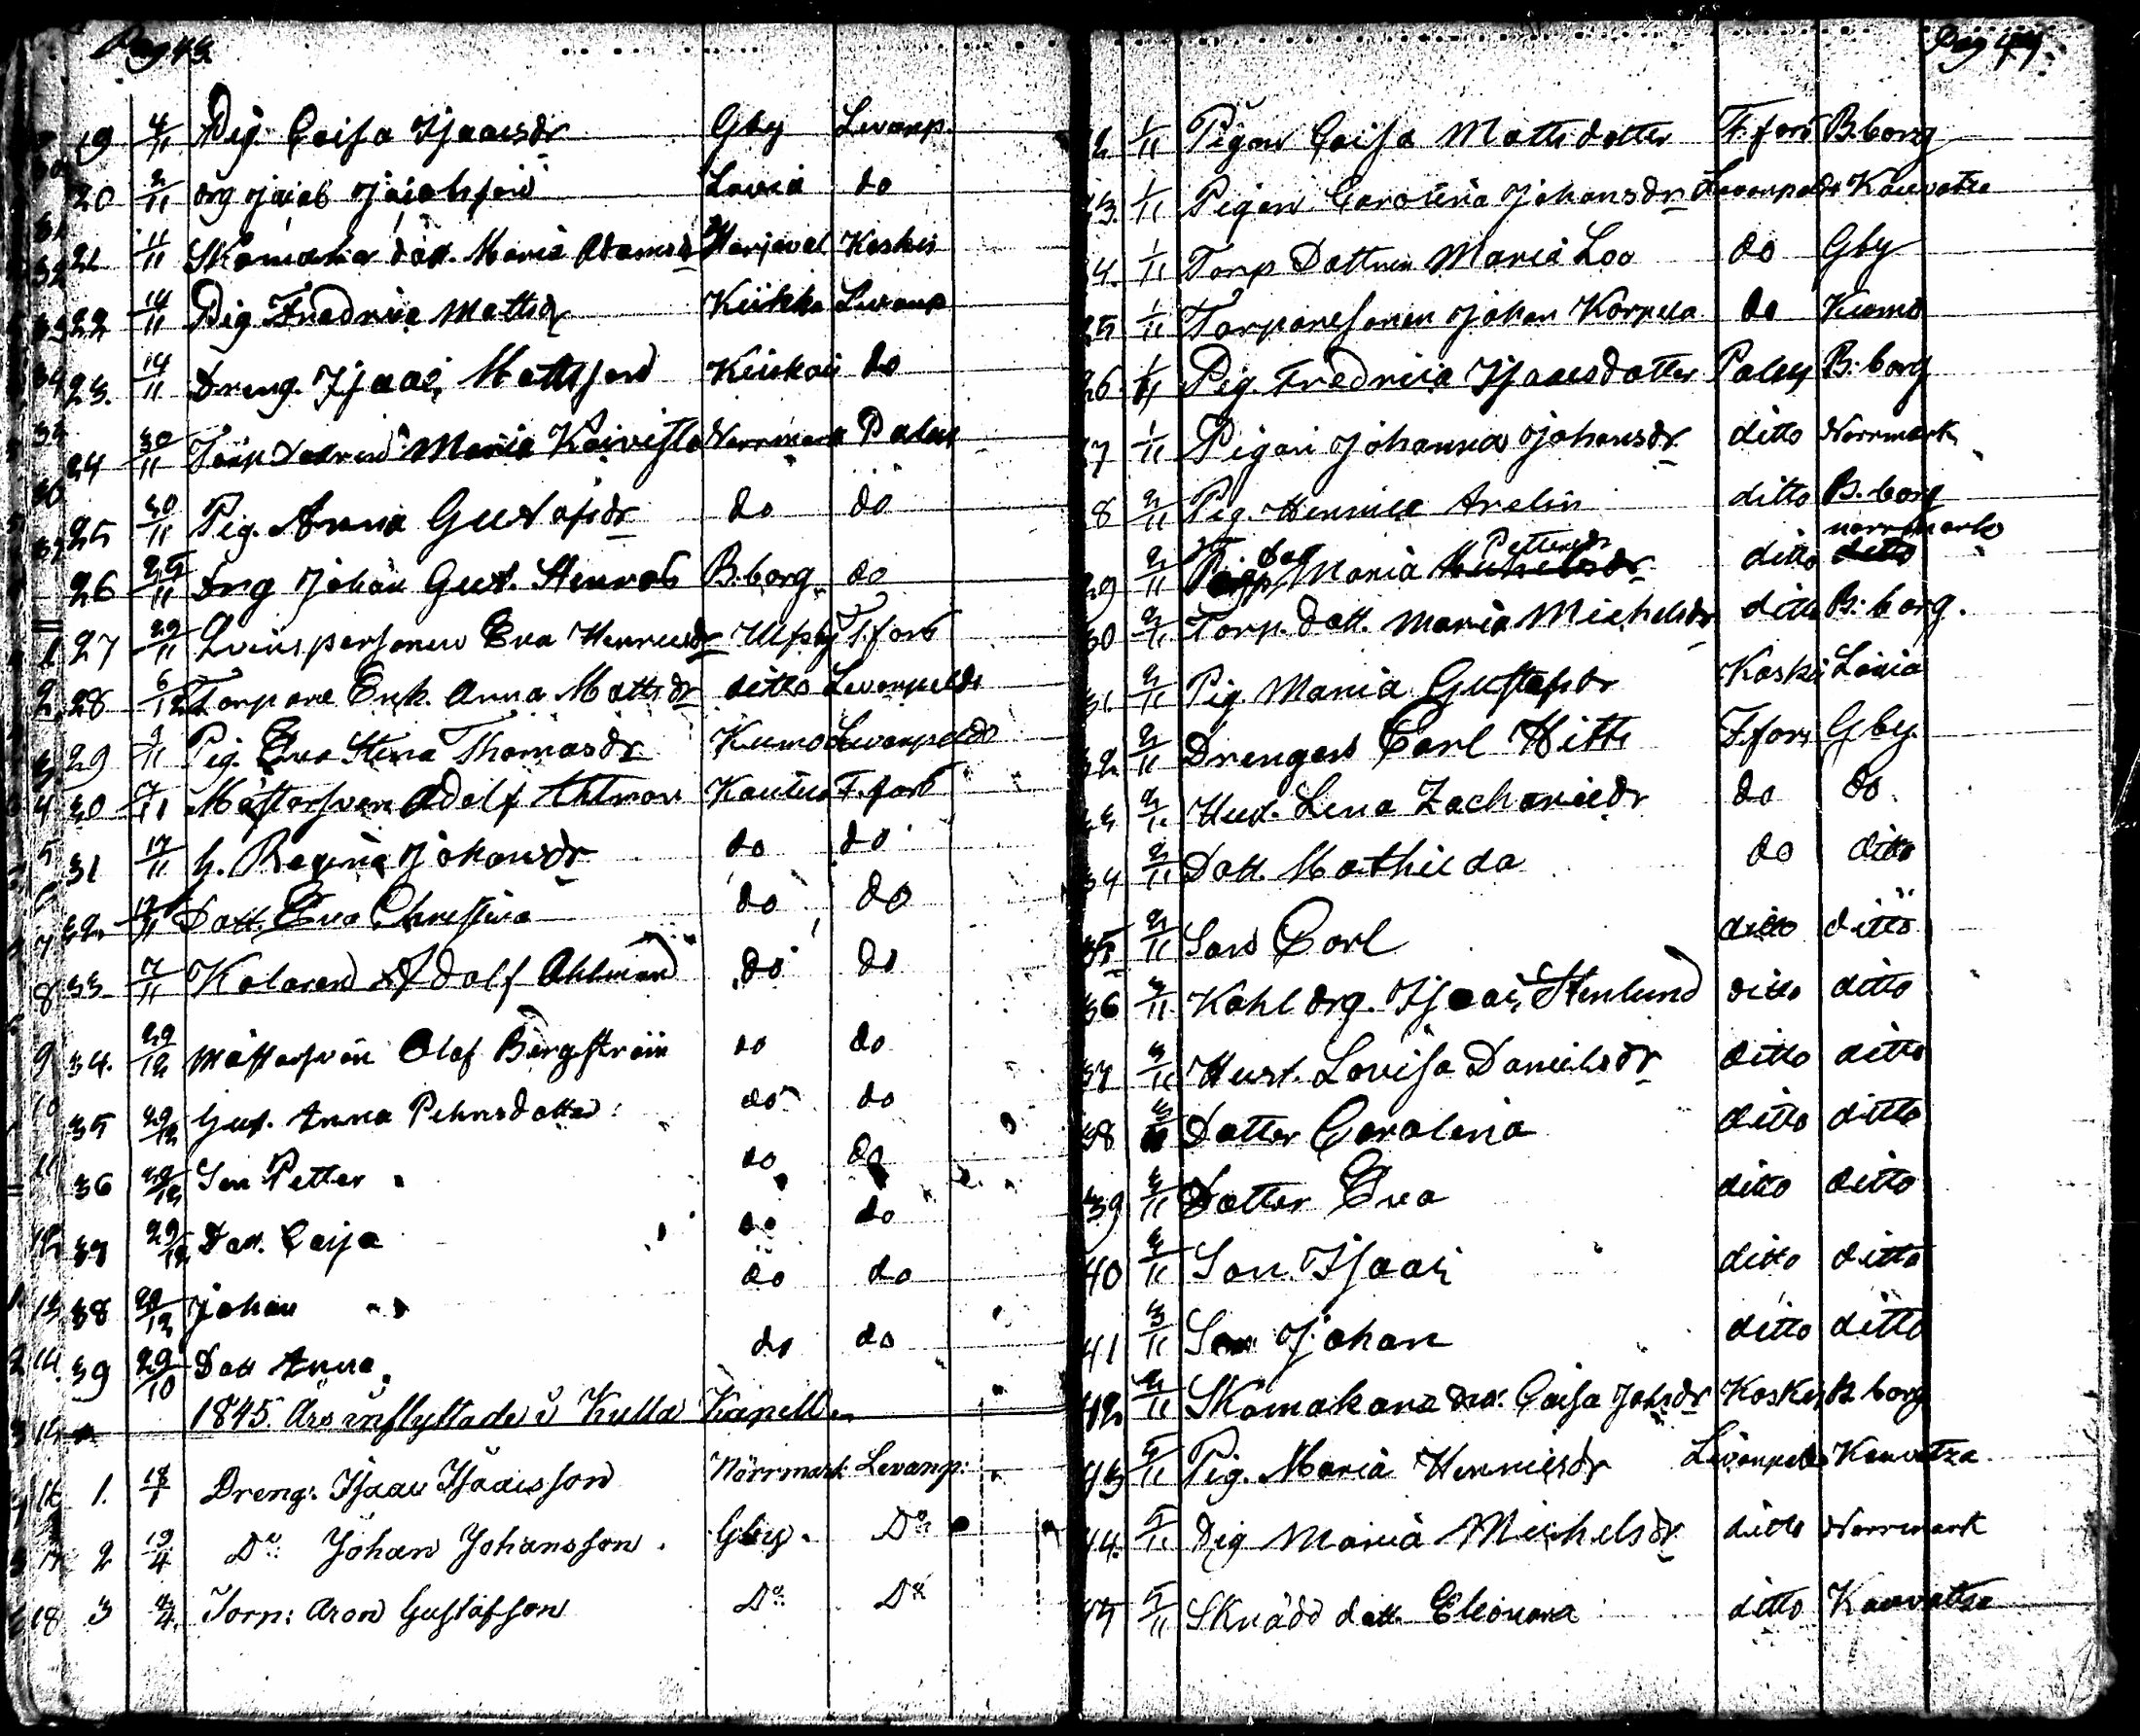 Pag 43.
19 4/11 Pig. Caisa Isaacsdr Gby Levanp.
20 2/11 drg Jacob Jacobsson Lavia do
21 11/11 Skomakar dott. Maria Adamsdr Harjavel Koskis
22 14/11 Pig Fredrica Mattsdr Kiikka Levanp
23. 14/11 Dreng. Isaac Mattsson do
24 30/11 Torp Dottren Maria Koivisto Norrmark Paley
25 30/11 Pig. Anna Gustafsdr do do
26 25/11 Drg Johan Gust. Stenroos B.borg do
27 29/11 Qvinspersonen Eva Henricsdr Ulfsby F.fors
28 6/12 Torpare Enk. Anna Mattsdr ditto Levanpeldo
29 9/11 Pig. Eva Stina Thomasdr Kumo Levanpeldo
30 7/11 Mästersven Adolf Ahlman Kautua F.fors
31 17/11 h. Regina Johansdr do do
32. 17/11 Dott. Eva Christina do do
33 17/11 Kolaren Adolf Ahlman do do
34. 29/12 Mästersven Olof Bergström do do
35 29/12 Hust. Anna Pehrsdotter do do
36 29/12 Son Petter do do
37 29/12 Dott. Caisa do do
38 29/12 Johan do do
39 29/10 Dott Anna do do
1845. Års inflyttade i Kulla Kapell
1. 18/1 Dreng: Isaac Isaacsson Norrmark Levanp:
2 19/4 Do: Johan Johansson. Gby. Do:
3 4/4. Torp: Aron Gustafsson Do: Do:
Pag 44.
22 1/11 Pigan Caisa Mattsdotter F.fors B.borg
23. 1/11 Pigan Carolina Johansdr Levanpeldo Kauvatza
24. 1/11 Torp Dottren Maria Loo do Gby
25 1/11 Torparesonen Johan Korpela do Kumo
26. 1/11 Pig. Fredrica Isaacsdotter Paley B:borg
27 1/11 Pigan Johanna Johansdr ditto Norrmark
28 2/11 Pig. Henrica Arelin ditto B.borg
29 2/11 dott Maria Pettersdr ditto norrmark
30 2/11 Torp. dott. Maria Michelsdr ditto B:borg.
31. 2/11 Pig. Maria Gustafsdr Koskis Lavia
32 2/11 Drengen Carl Hitt F.fors Gby.
33 2/11 Hust. Lena Zachariedr do do.
34 2/11 Dott. Mathilda do ditto
35 2/11 Son Carl ditto ditto
36 3/11 Kohldrg. Isaac Stenlund ditto ditto
37 3/11 Hust. Lovisa Danielsdr ditto ditto
38 Dotter Carolina ditto ditto
39 3/11 Dotter Eva ditto ditto
40 3/11 Son. Isaac ditto ditto
41 3/11 Son Johan ditto ditto
42 2/11 Skomakare Dott. Caisa Johsdr Koskis B.borg
43 5/11 Pig. Maria Henricsdr Levanpeldo Kauvatza
44. 5/11 Pig Maria Michelsdr ditto Norrmark
45 5/11 Skrädd dott. Eleonora ditto Kauvatza